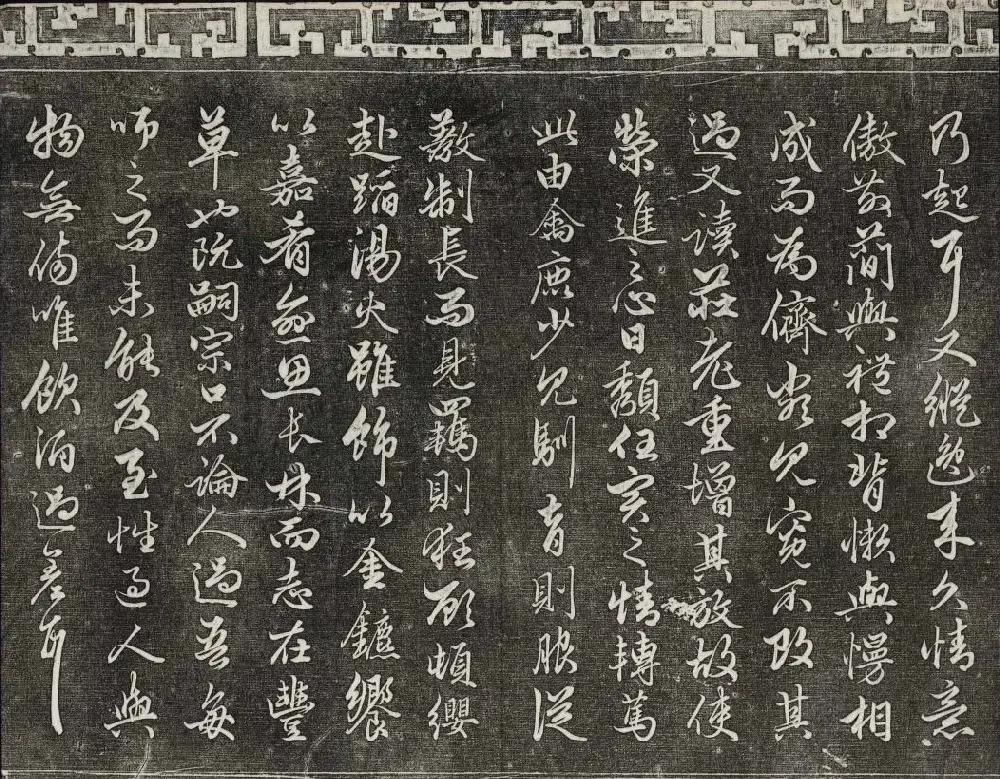 乃起耳又縱逸來久情意
傲散簡與禮相背懶與慢相
成而為儕類見寬不攻其
過又讀莊老重增其放故使
榮進之心日頹任實之情轉篤
此由禽鹿少見馴育則服從
教制長而見羈則狂顧頓纓
赴蹈湯火雖飾以金鑣饗
以嘉肴愈思長林而志在豐
草也阮嗣宗口不論人過吾每
師之而未能及至性過人與
物無傷唯飲酒過差耳